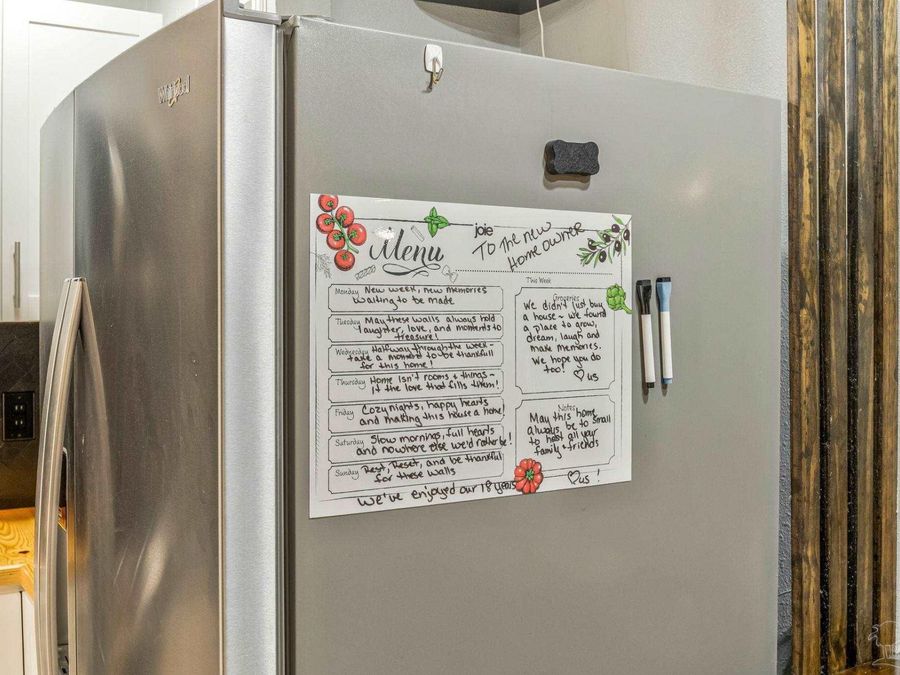 Whirlpool
joie
Menu
To The new
Home owner
This Week
Monday New week, new memories
waiting to be made
Tuesday May these walls always hold
laughter, love, and moments to
treasure!
Wednesday Halfway through the week -
take a moment to be thankful
for this home!
Thursday Home isn't rooms & things ~
it the love that fills them!
Friday Cozy nights, happy hearts
and making this house a home
Saturday Slow mornings, full hearts
and nowhere else we'd rather be!
Sunday Rest, Reset, and be thankful
for these walls
We've enjoyed our 18 years
Groceries
We didn't just buy
a house ~ we found
a place to grow,
dream, laugh and
make memories.
We hope you do
too! ♡ us
Notes
May this home
always be to small
to host all your
family & friends
♡us!